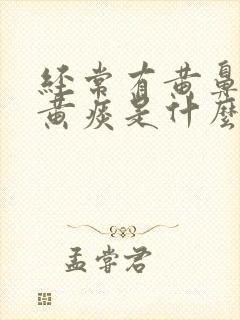 經常有黃鼻
黃痰是什麼
孟嘗君